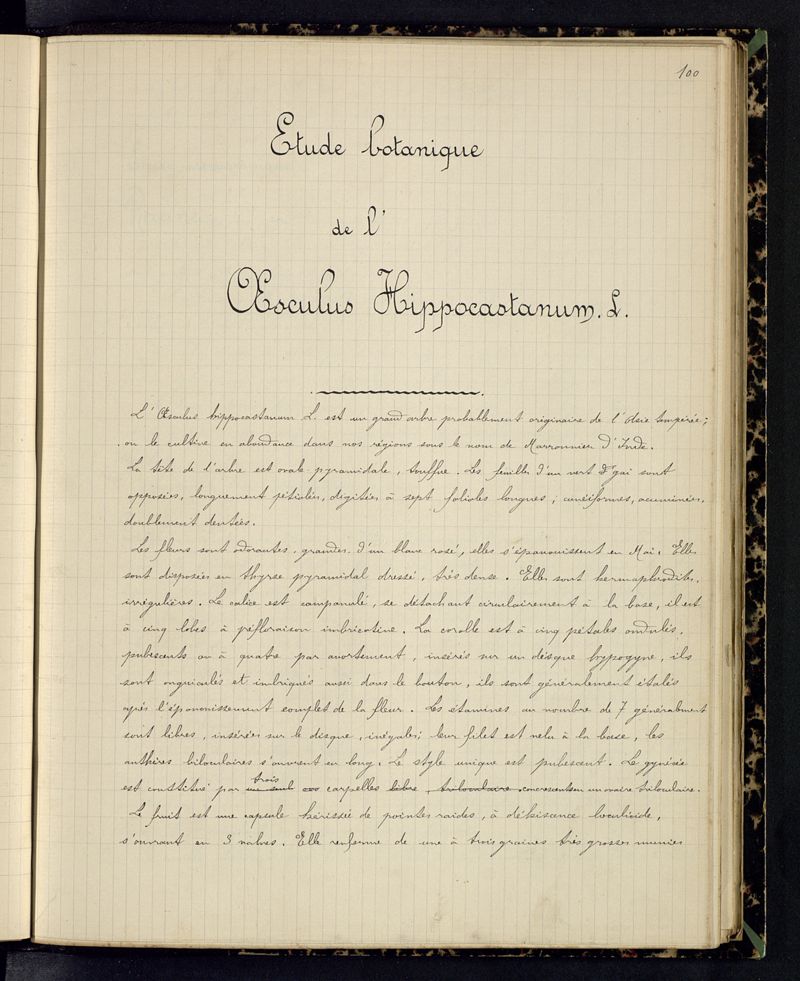 100
Etude botanique
de l'
Œsculus Hippocastanum. L.
L'Œsculus hippocastanum L. est un grand arbre probablement originaire de l'Asie tempérée;
on le cultive en abondance dans nos régions sous le nom de Marronnier d'Inde.
La tête de l'arbre est ovale pyramidale, touffue. Les feuilles d'un vert gai sont
opposées, longuement pétiolées, digitées à sept folioles longues, cunéiformes, acuminées,
doublement dentées.
Les fleurs sont odorantes, grandes d'un blanc rosé, elles s'épanouissent en Mai. Elles
sont disposées en thyrse pyramidal dressé, très dense. Elles sont hermaphrodites,
irrégulières. Le calice est campanulé, se détachant circulairement à la base, il est
à cinq lobes à préfloraison imbricative. La corolle est à cinq pétales ondulés,
pubescents ou à quatre par avortement, insérés sur un disque hypogyne, ils
sont onguiculés et imbriqués aussi dans le bouton, ils sont généralement étalés
après l'épanouissement complet de la fleur. Les étamines au nombre de 7 généralement
sont libres, insérées sur le disque, inégales; leur filet est velu à la base, les
anthères biloculaires s'ouvrent en long. Le style unique est pubescent. Le gynécée
est constitué par un seul trois carpelles libre, triloculaire concrescents en un ovaire triloculaire.
Le fruit est une capsule hérissée de pointes raides, à déhiscence loculicide,
s'ouvrant en 3 valves. Elle renferme de une à trois graines très grosses munies